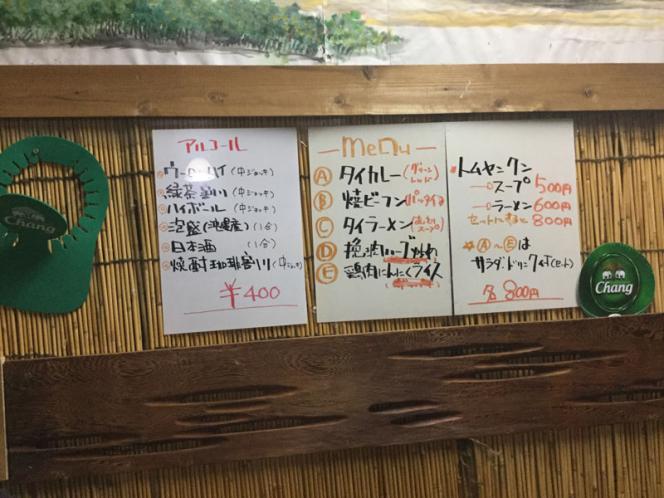 アルコール
ウーロンハイ (中ジョッキ)
緑茶割り (中ジョッキ)
ハイボール (中ジョッキ)
泡盛(沖縄産) (1合)
日本酒 (1合)
焼酎珈琲割り (中ジョッキ)
¥400
—MeNu—
Ⓐ タイカレー(グリーン レッド)
Ⓑ 焼ビーフン(パッタイ)
Ⓒ タイラーメン
Ⓓ 挽肉ハーブ炒め
Ⓔ 鶏肉にんにくライス
トムヤンクン
スープ 500円
ラーメン 600円
セットにすると 800円
☆Ⓐ〜Ⓔは
サラダ・ドリンク付(セット)
各 800円
Chang
Chang